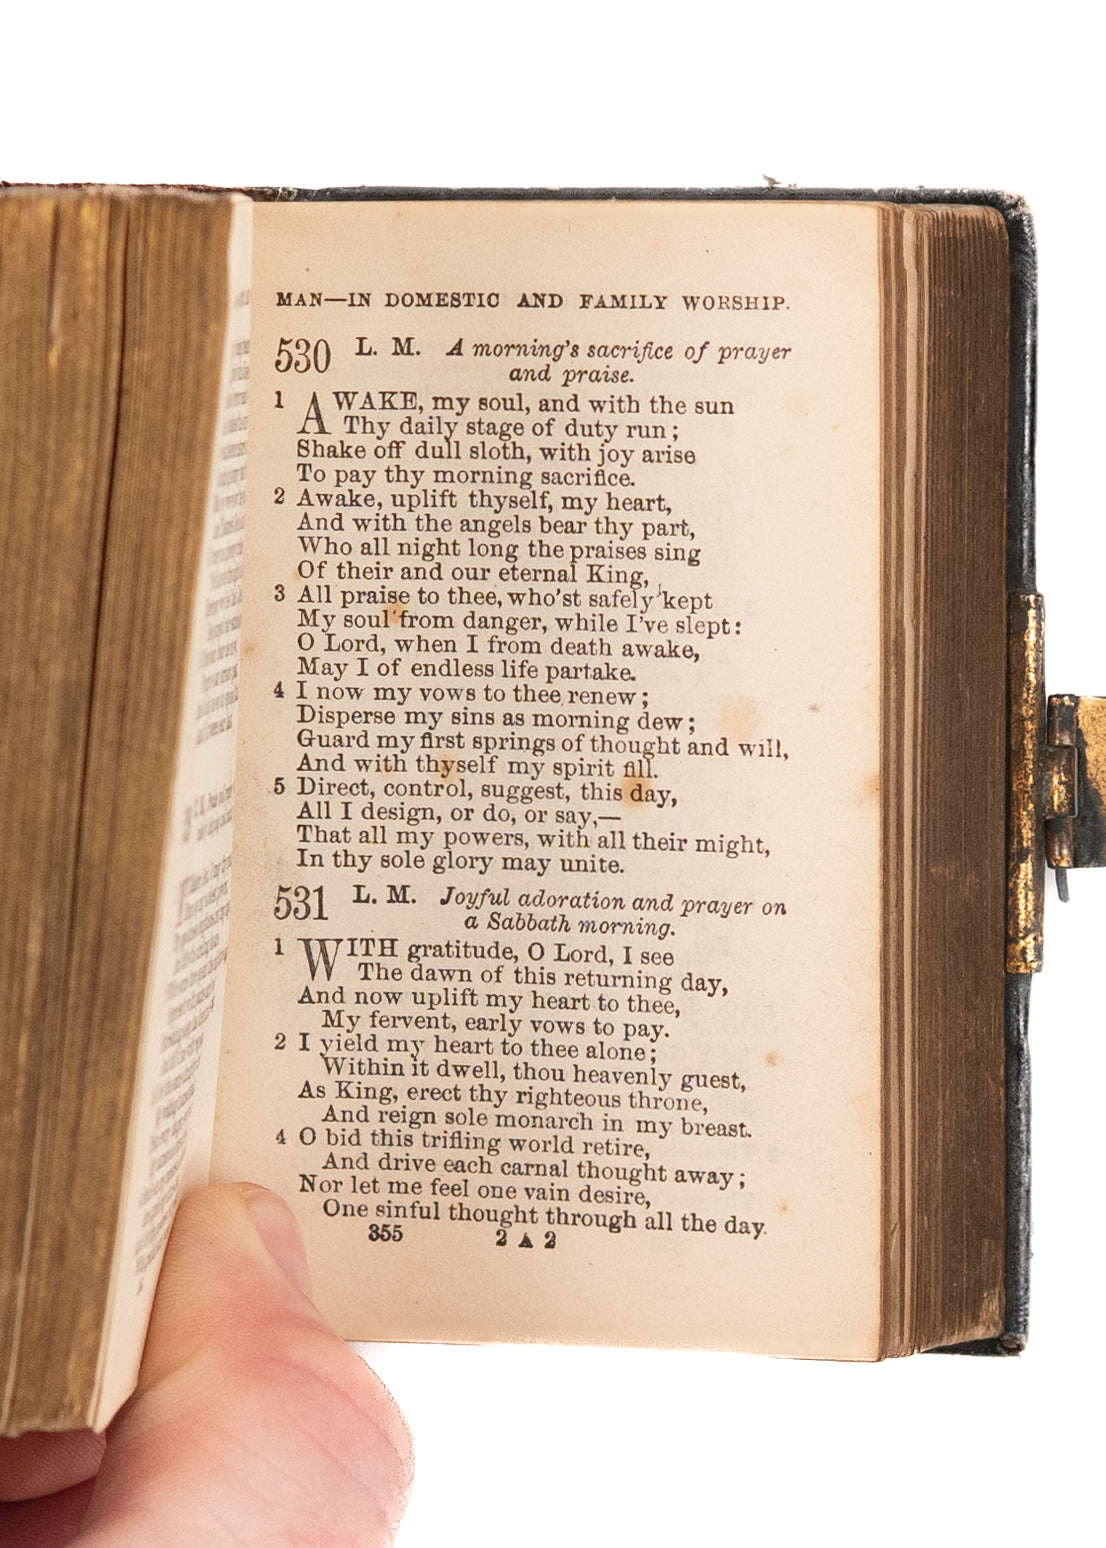 MAN—IN DOMESTIC AND FAMILY WORSHIP.
530 L. M. A morning's sacrifice of prayer
and praise.
1 AWAKE, my soul, and with the sun
Thy daily stage of duty run;
Shake off dull sloth, with joy arise
To pay thy morning sacrifice.
2 Awake, uplift thyself, my heart,
And with the angels bear thy part,
Who all night long the praises sing
Of their and our eternal King,
3 All praise to thee, who'st safely kept
My soul from danger, while I've slept:
O Lord, when I from death awake,
May I of endless life partake.
4 I now my vows to thee renew;
Disperse my sins as morning dew;
Guard my first springs of thought and will,
And with thyself my spirit fill.
5 Direct, control, suggest, this day,
All I design, or do, or say,—
That all my powers, with all their might,
In thy sole glory may unite.
531 L. M. Joyful adoration and prayer on
a Sabbath morning.
1 WITH gratitude, O Lord, I see
The dawn of this returning day,
And now uplift my heart to thee,
My fervent, early vows to pay.
2 I yield my heart to thee alone;
Within it dwell, thou heavenly guest,
As King, erect thy righteous throne,
And reign sole monarch in my breast.
4 O bid this trifling world retire,
And drive each carnal thought away;
Nor let me feel one vain desire,
One sinful thought through all the day.
355 2 A 2